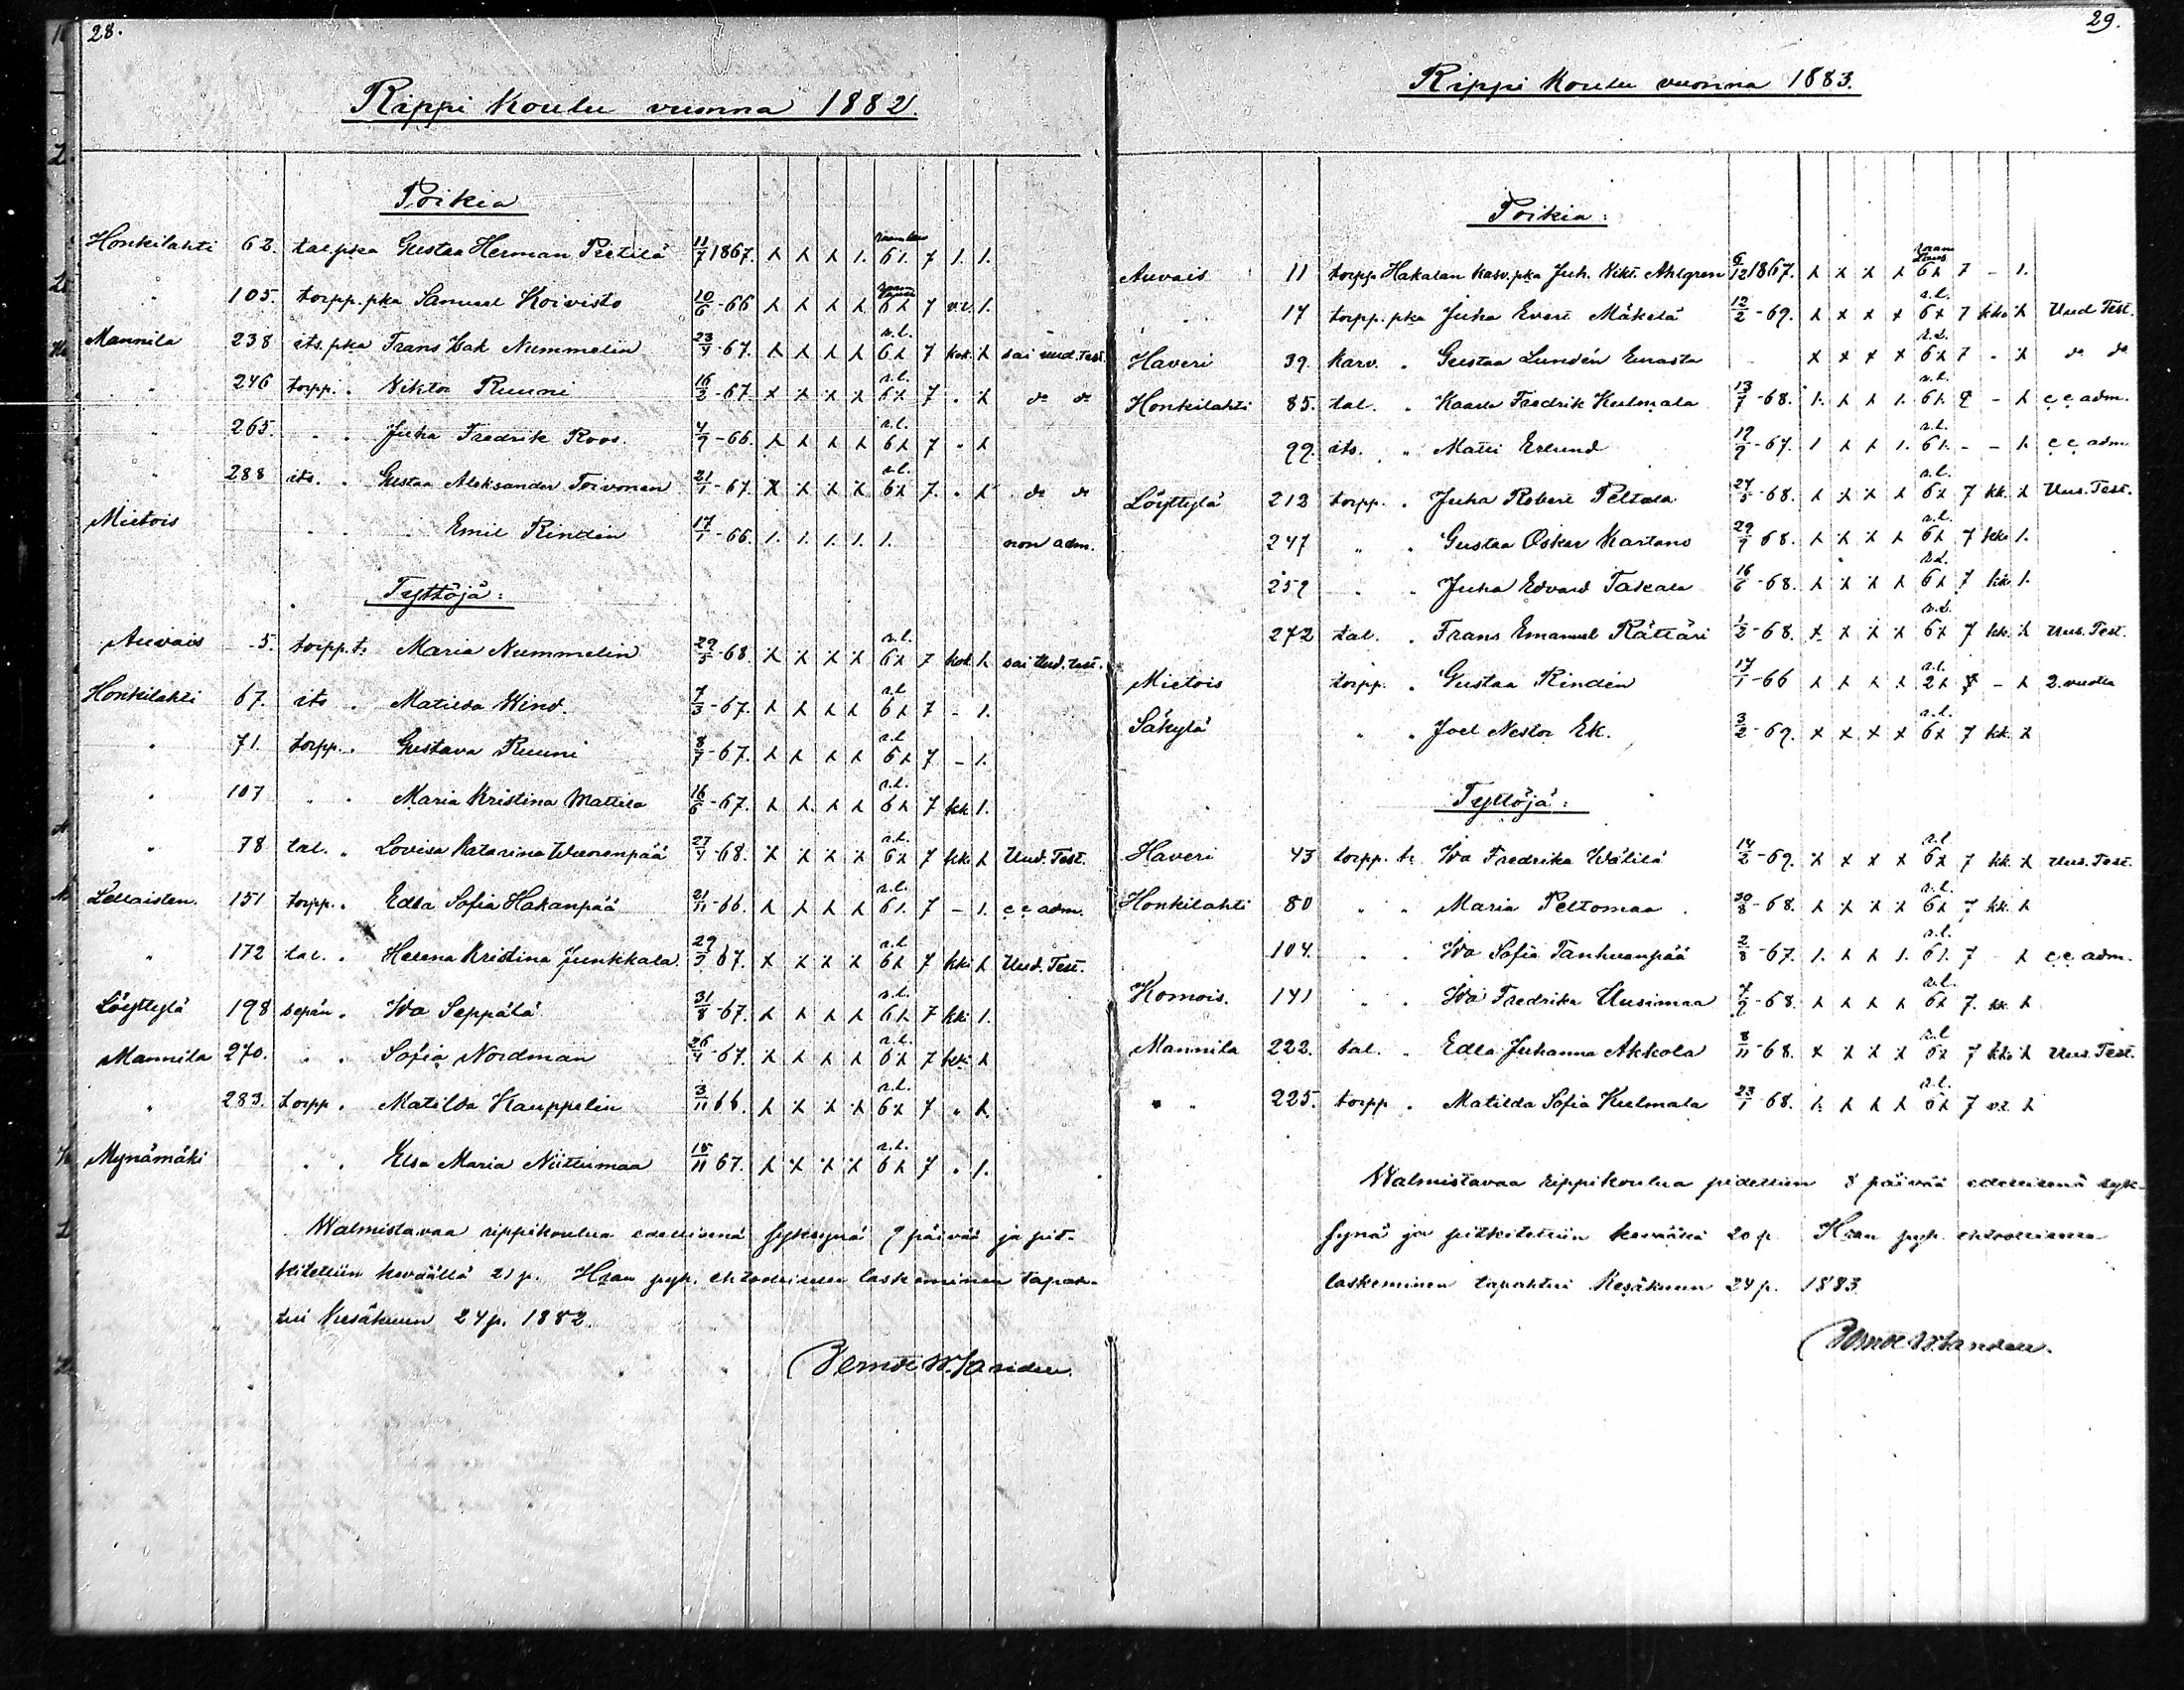 28.
Rippi koulu vuonna 1882.
Poikia
Honkilahti 62. tal.pka Gustaa Herman Pietilä 11/7 1867. 6 1. 7 1. 1.
" 105. torpp. pka Samuel Koivisto 10/6 -66 7 1.
Mannila 238 its. pka Frans Isak Nummelin 23/4 -67. r.l. 7 kok. sai uud. Test.
" 246 torpp. " Viktor Ruuni 16/2 -67. r.l. 7 " do do
" 265. " " Juha Fredrik Roos. 4/9 -66. r.l. 7 "
" 288 its. " Gustaa Aleksander Toivonen 21/1 -67. r.l. 7. " do do
Mietois " " Emil Rindin 17/1 -66. 1. 1. 1. 1. 1. non adm.
Tyttöjä:
Auvais 5. torpp. t. Maria Nummelin 29/5 -68. r.l. 7 kok. sai Uud. test.
Honkilahti 67. its " Matilda Wind. 7/3 -67. r.l. 7 - 1.
" 71. torpp. " Gustava Ruuni 8/7 -67. r.l. 7 - 1.
" 107 " " Maria Kristina Mattila 16/6 -67. r.l. 7 kk. 1.
" 78 tal. " Lovisa Katarina Wuorenpää 27/4 -68. r.l. 7 kk. Uud. Test.
Lellaisten. 151 torpp. " Edla Sofia Hakanpää 21/11 -66. r.l. 6 1. 7 - 1. c c adm.
" 172 tal. " Helena Kristina Junkkala. 29/5 67. r.l. 7 kk. Uud. Test.
Löyttylä 198 sepän " Ida Seppälä 31/8 -67. r.l. 7 kk. 1.
Mannila 270. " " Sofia Nordman 26/4 -67. r.l. 7 kk.
" 283. torpp. " Matilda Kauppelin 3/11 66. r.l. 7 "
Mynämäki " " Elsa Maria Niittumaa 15/11 67. r.l. 7 " 1.
Walmistavaa rippikoulua edellisenä syksynä 9 päivää ja pit-
kitettiin keväällä 21 p. Hran pyh. ehtoollisen laskeminen tapah-
tui Kesäkuun 24 p. 1882.
29.
Rippi koulu vuonna 1883.
Poikia:
Auvais 11 torpp. Hakalan kasv. pka Juh. Vikt. Ahlgren 6/12 1867. 7 - 1.
" 17 torpp. pka Juha Evert Mäkelä 12/2 -69. r.l. 7 kk. Uud Test.
Haveri 39. karv. " Gustaa Lundén Eurasta - r.l. 7 - do do
Honkilahti 85. tal. " Kaarle Fredrik Kulmala 13/7 -68. r.l. 6 1. - c c adm.
99. its. " Matti Erlund 19/9 -67. r.l. 6 1. - - c c adm
Löyttylä 213 torpp. " Juha Robert Peltola 27/5 -68. r.l. 7 kk. Uus. Test.
247 " " Gustaa Oskar Kartano 29/9 68. r.l. 7 kk 1.
259 " " Juha Edvard Taskala 16/6 -68. r.l. 7 kk. 1.
272 tal. " Frans Emanuel Rättäri 1/2 -68. r.l. 7 kk. Uus. Test.
Mietois torpp. " Gustaa Rindén 17/1 -66 r.l. - 2. vuotta
Säkylä " " Joel Nestor Ek. 3/2 -69. r.l. 7 kk.
Tyttöjä:
Haveri 43 torpp. tr. Ida Fredrika Wälilä 14/2 -69. r.l. 7 kk. Uus. Test.
Honkilahti 80 " " Maria Peltomaa 30/8 -68. r.l. 7 kk.
104. " " Ida Sofia Tanhuanpää 2/8 -67. r.l. 6 1. 7 - c c adm.
Komois. 141 " " Ida Fredrika Uusimaa 4/9 -68. r.l. 7. kk.
Mannila 222. tal. " Edla Juhanna Akkola 8/11 -68. r.l. 7 kk. Uus. Test.
" " 225. torpp. " Matilda Sofia Kulmala 23/1 -68. r.l. 7
Walmistavaa rippikoulua pidettiin 8 päivää edellisenä syk-
synä ja pitkitettiin keväällä 20 p. Hran pyh. ehtoollisen
laskeminen tapahtui Kesäkuun 24 p. 1883.